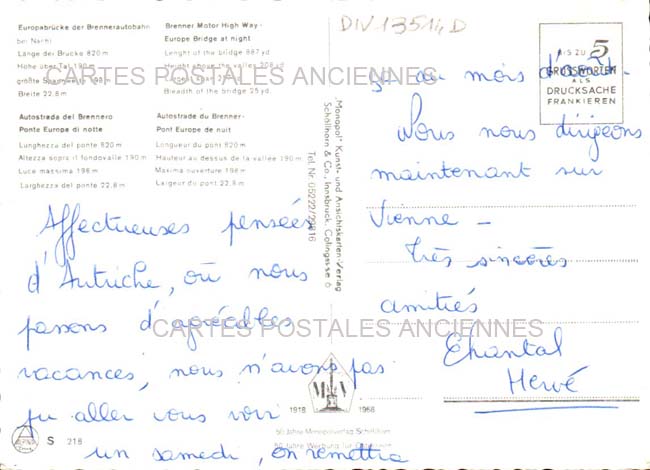 DIV 13514D
Europabrücke der Brennerautobahn
bei Nacht
Länge der Brücke 820 m
Höhe über Tal 190 m
größte 198 m
Breite 22.8 m
Brenner Motor High Way -
Europe Bridge at night
Lenght of the bridge 887 yd
Hight above the valley 208 yd
Breadth of the bridge 25 yd.
Autostrada del Brennero
Ponte Europa di notte
Lunghezza del ponte 820 m
Altezza sopra il fondovalle 190 m
Luce massima 198 m
Larghezza del ponte 22.8 m
Autostrade du Brenner-
Pont Europe de nuit
Longueur du pont 820 m
Hauteur au dessus de la vallée 190 m
Maxima ouverture 198 m
Largeur du pont 22.8 m
Monopol- Kunst- und Ansichtskarten-Verlag
Schöllhorn & Co., Innsbruck, Colingasse 6
Tel. Nr. 05222/
BIS ZU 5
GRUSSWORTEN
ALS
DRUCKSACHE
FRANKIEREN
CARTES POSTALES ANCIENNES
Affectueuses pensées
d'Autriche, où nous
passons d'agréables
CARTES POSTALES ANCIENNES
vacances, nous n'avons pas
pu aller vous voir
un samedi, on remettra
ça au mois d'août.
Nous nous dirigeons
maintenant sur
Vienne -
Très sincères
amitiés
Chantal
Hervé
1918 1968
50 Jahre Monopolverlag Schöllhorn
50 Jahre Werbung für Österreich
S 218